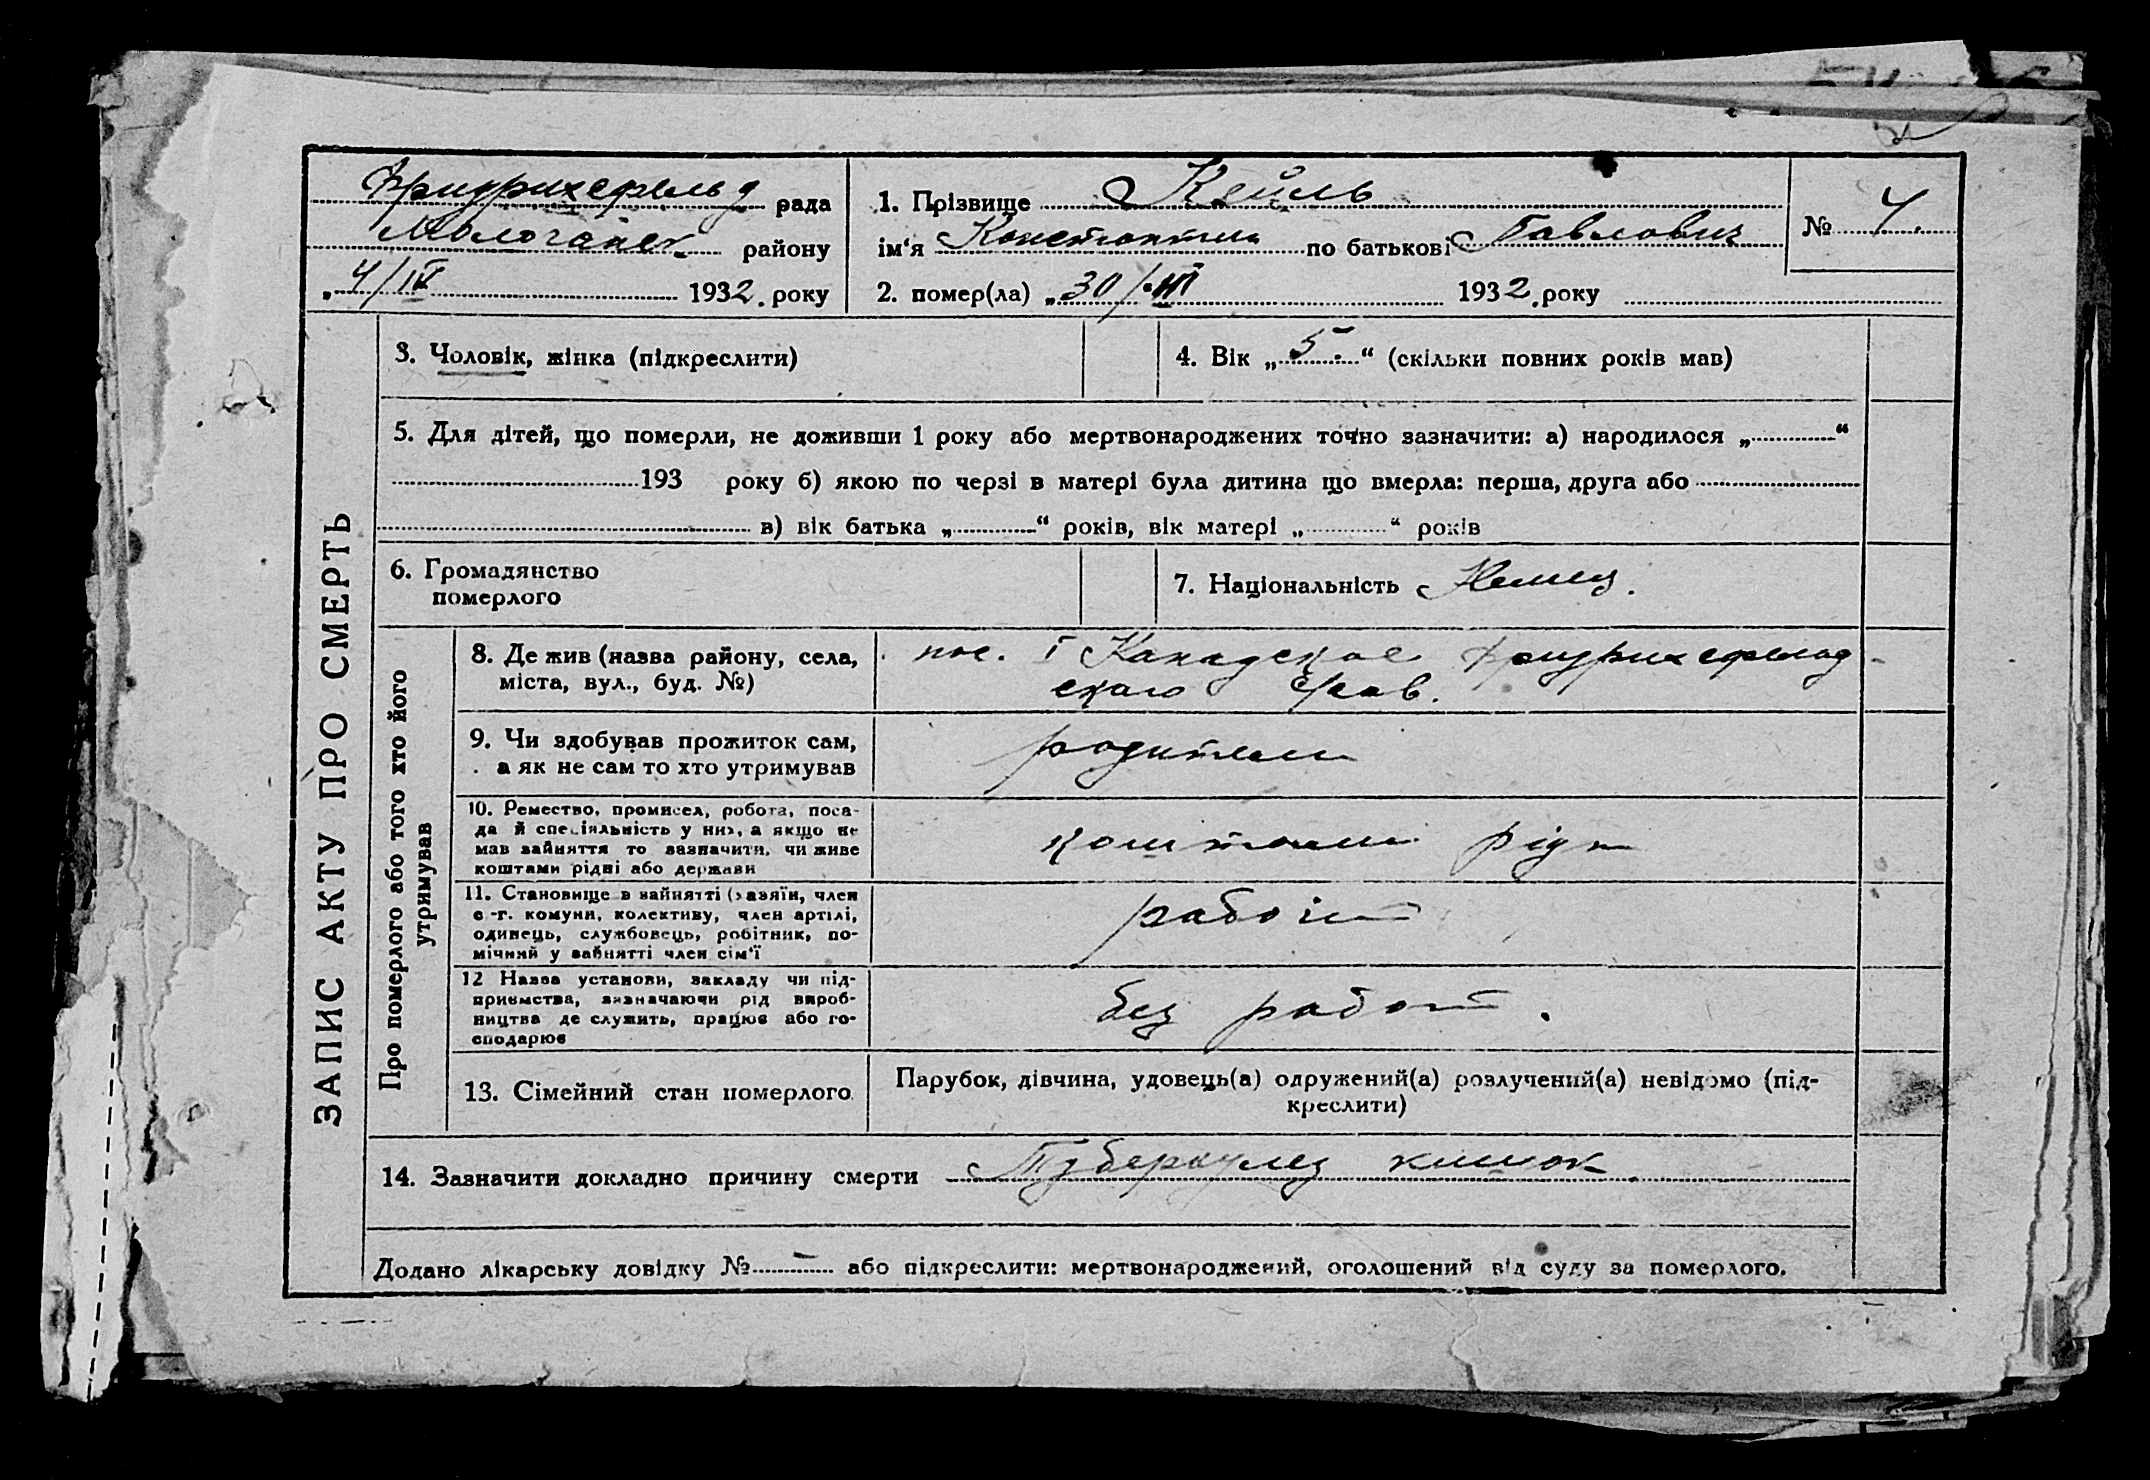 Фридрихсфельд рада
Молочанск району
„ 4/IV 1932. року
1. Прізвище Кейль
ім‘я Константин по батькові Павлович
2. помер(ла) „ 30/III 1932. року
№ 4.
ЗАПИС АКТУ ПРО СМЕРТЬ
3. Чоловік, жінка (підкреслити)
4. Вік „ 5. “ (скільки повних років мав)
5. Для дітей, що померли, не доживши 1 року або мертвонароджених точно зазначити: а) народилося „ “
193 року б) якою по черзі в матері була дитина що вмерла: перша, друга або
в) вік батька „ “ років, вік матері „ “ років
6. Громадянство
померлого
7. Національність Немец.
Про померлого або того хто його
утримував
8. Де жив (назва району, села,
міста, вул., буд. №)
пос. I Канадское Фридрихсфельд-
скаго
9. Чи здобував прожиток сам,
а як не сам то хто утримував
родители
10. Ремество, промисел, робота, поса-
да й спеціяльність у них, а якщо не
мав зайняття то зазначити, чи живе
коштами рідні або держави
коштами рідн
11. Становище в зайнятті (хазяїн, член
с-г. комуни, колективу, член артілі,
одинець, службовець, робітник, по-
мічний у зайнятті член сім‘ї
12 Назва установи, закладу чи під-
приємства, зазначаючи рід вироб-
ництва де служить, працює або го-
сподарює
без работ.
13. Сімейний стан померлого
Парубок, дівчина, удовець(а) одружений(а) розлучений(а) невідомо (під-
креслити)
14. Зазначити докладно причину смерти Туберкулез кишок.
Додано лікарську довідку № — або підкреслити: мертвонароджений, оголошений від суду за померлого.